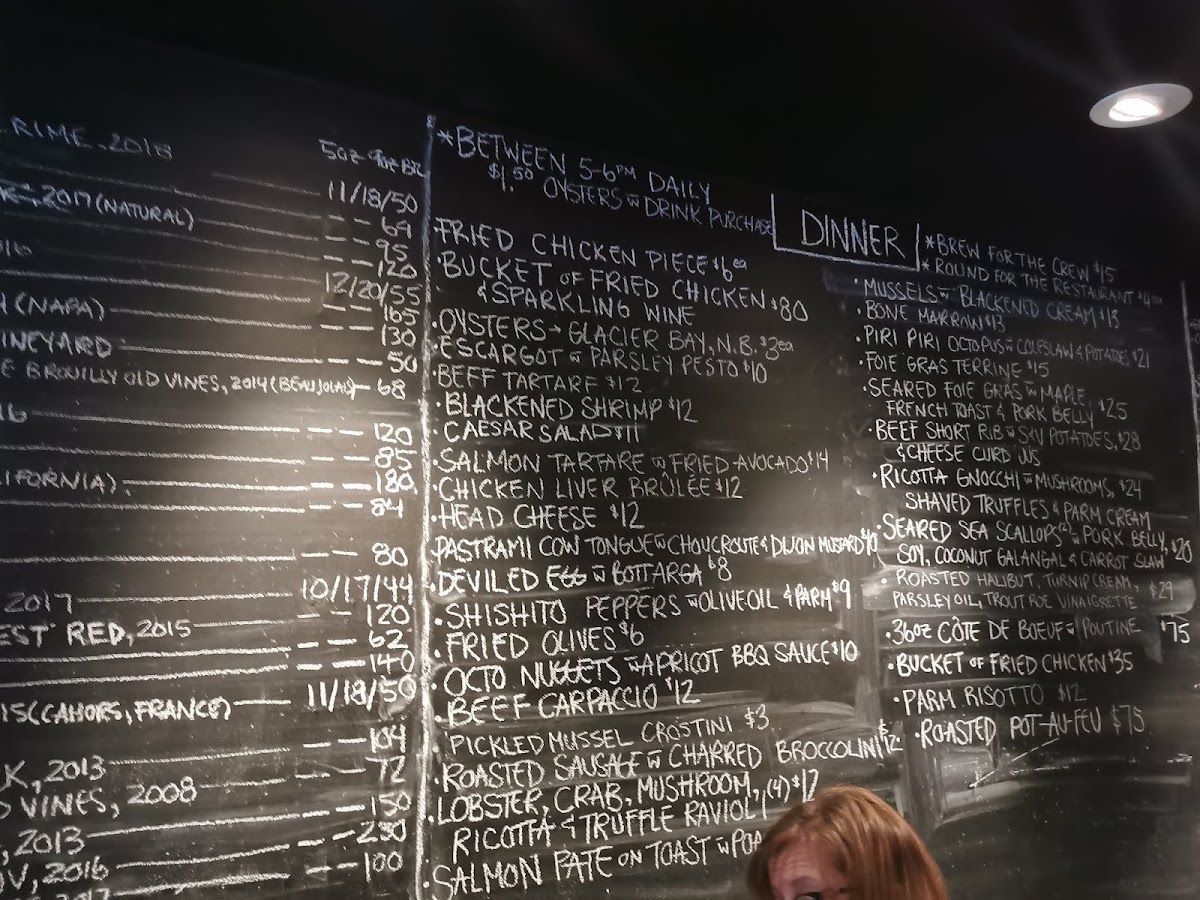 RIME, 2018
5oz 9oz BTL
11/18/50
2017 (NATURAL) -- 69
-- 95
16 -- 120
12/20/55
(NAPA) -- 165
-- 130
INEYARD -- 50
E BROUILLY OLD VINES, 2014 (BEAUJOLAIS) - 68
16 -- 120
-- 85
IFORNIA) -- 180
-- 84
-- 80
10/17/44
2017 -- 120
EST RED, 2015 -- 62
-- 140
11/18/50
15 (CAHORS, FRANCE) -- 104
K, 2013 -- 72
D VINES, 2008 -- 150
, 2013 -- 230
OV, 2016 -- 100
* BETWEEN 5-6PM DAILY
$1.50 OYSTERS w DRINK PURCHASE
FRIED CHICKEN PIECE $6ea
BUCKET OF FRIED CHICKEN $80
& SPARKLING WINE
· OYSTERS → GLACIER BAY, N.B. $3ea
· ESCARGOT w PARSLEY PESTO $10
· BEEF TARTARE $12
· BLACKENED SHRIMP $12
· CAESAR SALAD $11
· SALMON TARTARE w FRIED AVOCADO $14
· CHICKEN LIVER BRULÉE $12
· HEAD CHEESE $12
· PASTRAMI COW TONGUE w CHOUCROUTE & DIJON MUSTARD $10
· DEVILED EGG w BOTTARGA $8
· SHISHITO PEPPERS w OLIVE OIL & PARM $9
· FRIED OLIVES $6
· OCTO NUGGETS w APRICOT BBQ SAUCE $10
· BEEF CARPACCIO $12
· PICKLED MUSSEL CROSTINI $3
· ROASTED SAUSAGE w CHARRED BROCCOLINI $12
· LOBSTER, CRAB, MUSHROOM, (4) $17
RICOTTA & TRUFFLE RAVIOLI
· SALMON PATE ON TOAST w
DINNER
* BREW FOR THE CREW $15
* ROUND FOR THE RESTAURANT
· MUSSELS w BLACKENED CREAM $13
· BONE MARROW $13
· PIRI PIRI OCTOPUS w COLESLAW & POTATOES $21
· FOIE GRAS TERRINE $15
· SEARED FOIE GRAS w MAPLE, $25
FRENCH TOAST & PORK BELLY
· BEEF SHORT RIB w SAV POTATOES, $28
& CHEESE CURD JUS
· RICOTTA GNOCCHI w MUSHROOMS, $24
SHAVED TRUFFLES & PARM CREAM
· SEARED SEA SCALLOPS (2) w PORK BELLY, $20
SOY, COCONUT GALANGAL & CARROT SLAW
· ROASTED HALIBUT, TURNIP CREAM, $29
PARSLEY OIL, TROUT ROE VINAIGRETTE
· 36oz CÔTE DE BOEUF w POUTINE $75
· BUCKET OF FRIED CHICKEN $35
· PARM RISOTTO $12
· ROASTED POT-AU-FEU $75